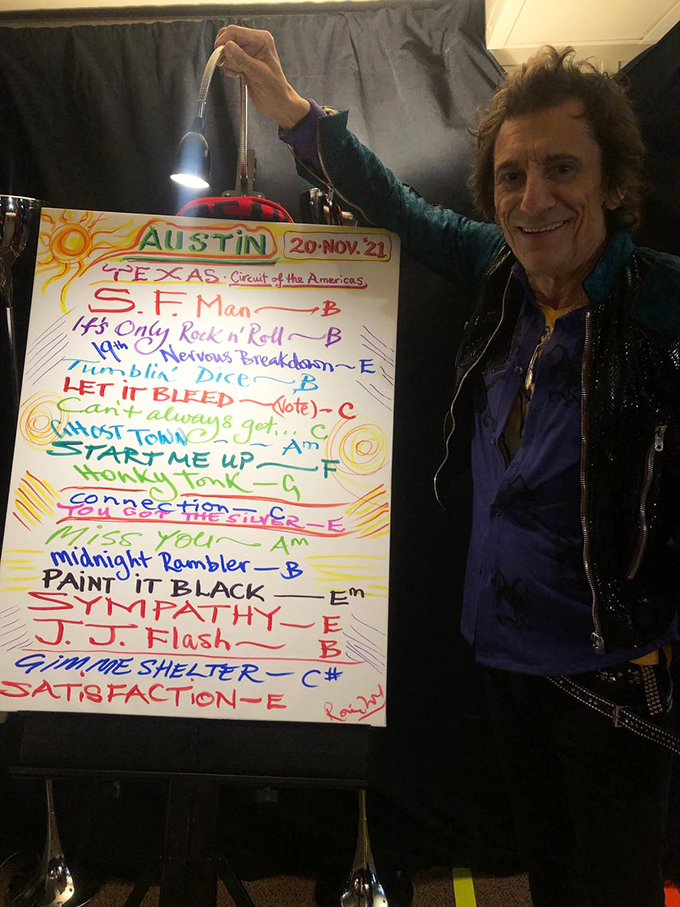 AUSTIN 20·NOV.'21
TEXAS · Circuit of the Americas
S.F. Man — B
It's Only Rock n' Roll — B
19th Nervous Breakdown ~ E
Tumblin' Dice — B
LET iT BLEED — (Vote) - C
Can't always get... C
GHOST TOWN ~ ~ ~ Am
START ME UP — F
Honky Tonk — G
connection — C
YOU GOT THE SILVER — E
MiSS YOU ~ Am
midnight Rambler — B
PAiNT iT BLACK — Em
SYMPATHY — E
J.J. Flash — B
GiMME SHELTER — C#
SATiSFACTiON — E